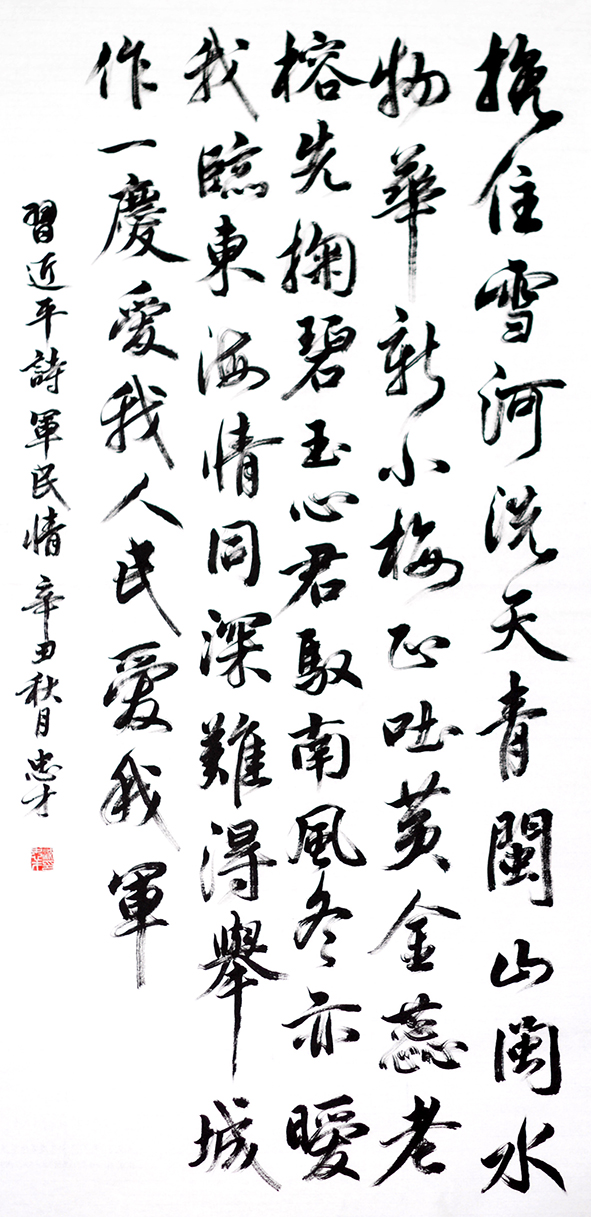 挽住雪河洗天青閩山閩水
物華新小梅正吐黃金蕊老
榕先掬碧玉心君馭南風冬亦暖
我臨東海情同深難得舉城
作一慶愛我人民愛我軍
習近平詩軍民情 辛丑秋月 忠才